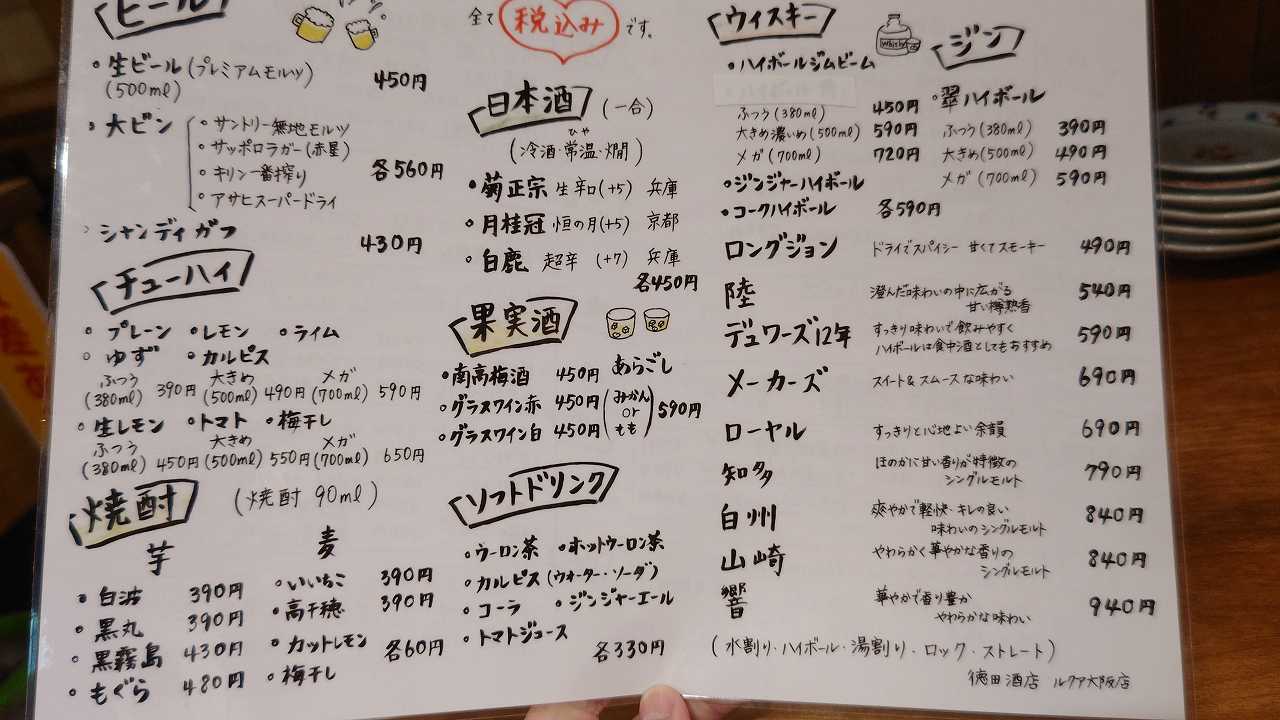 ビール
・生ビール(プレミアムモルツ)
(500ml)
450円
・大ビン
・サントリー無地モルツ
・サッポロラガー(赤星)
・キリン一番搾り
・アサヒスーパードライ
各560円
シャンディガフ
430円
チューハイ
・プレーン ・レモン ・ライム
・ゆず ・カルピス
ふつう 大きめ メガ
(380ml) 390円 (500ml) 490円 (700ml) 590円
・生レモン ・トマト ・梅干し
ふつう 大きめ メガ
(380ml) 450円 (500ml) 550円 (700ml) 650円
焼酎 (焼酎 90ml)
芋
・白波 390円
・黒丸 390円
・黒霧島 430円
・もぐら 480円
麦
・いいちこ 390円
・高千穂 390円
・カットレモン 各60円
・梅干し
全て 税込み です。
日本酒 (一合)
ひや
(冷酒・常温・燗)
・菊正宗 生辛口(+5) 兵庫
・月桂冠 恒の月(+5) 京都
・白鹿 超辛 (+7) 兵庫
各450円
果実酒
・南高梅酒 450円
・グラスワイン赤 450円
・グラスワイン白 450円
あらごし
(みかん
or
もも) 590円
ソフトドリンク
・ウーロン茶 ・ホットウーロン茶
・カルピス(ウォーター・ソーダ)
・コーラ ・ジンジャーエール
・トマトジュース
各330円
ウィスキー
Whisky
・ハイボールジムビーム
ふつう(380ml) 450円
大きめ濃いめ(500ml) 590円
メガ(700ml) 720円
・ジンジャーハイボール
・コークハイボール 各590円
ジン
・翠ハイボール
ふつう(380ml) 390円
大きめ(500ml) 490円
メガ(700ml) 590円
ロングジョン ドライでスパイシー 甘くてスモーキー 490円
陸 澄んだ味わいの中に広がる
甘い樽熟香 540円
デュワーズ12年 すっきり味わいで飲みやすく
ハイボールは食中酒としてもおすすめ 590円
メーカーズ スイート&スムースな味わい 690円
ローヤル すっきりと心地よい余韻 690円
知多 ほのかに甘い香りが特徴の
シングルモルト 790円
白州 爽やかで軽快・キレの良い
味わいのシングルモルト 840円
山崎 やわらかく華やかな香りの
シングルモルト 840円
響 華やかで香り豊か
やわらかな味わい 940円
(水割り・ハイボール・湯割り・ロック・ストレート)
徳田酒店 ルクア大阪店